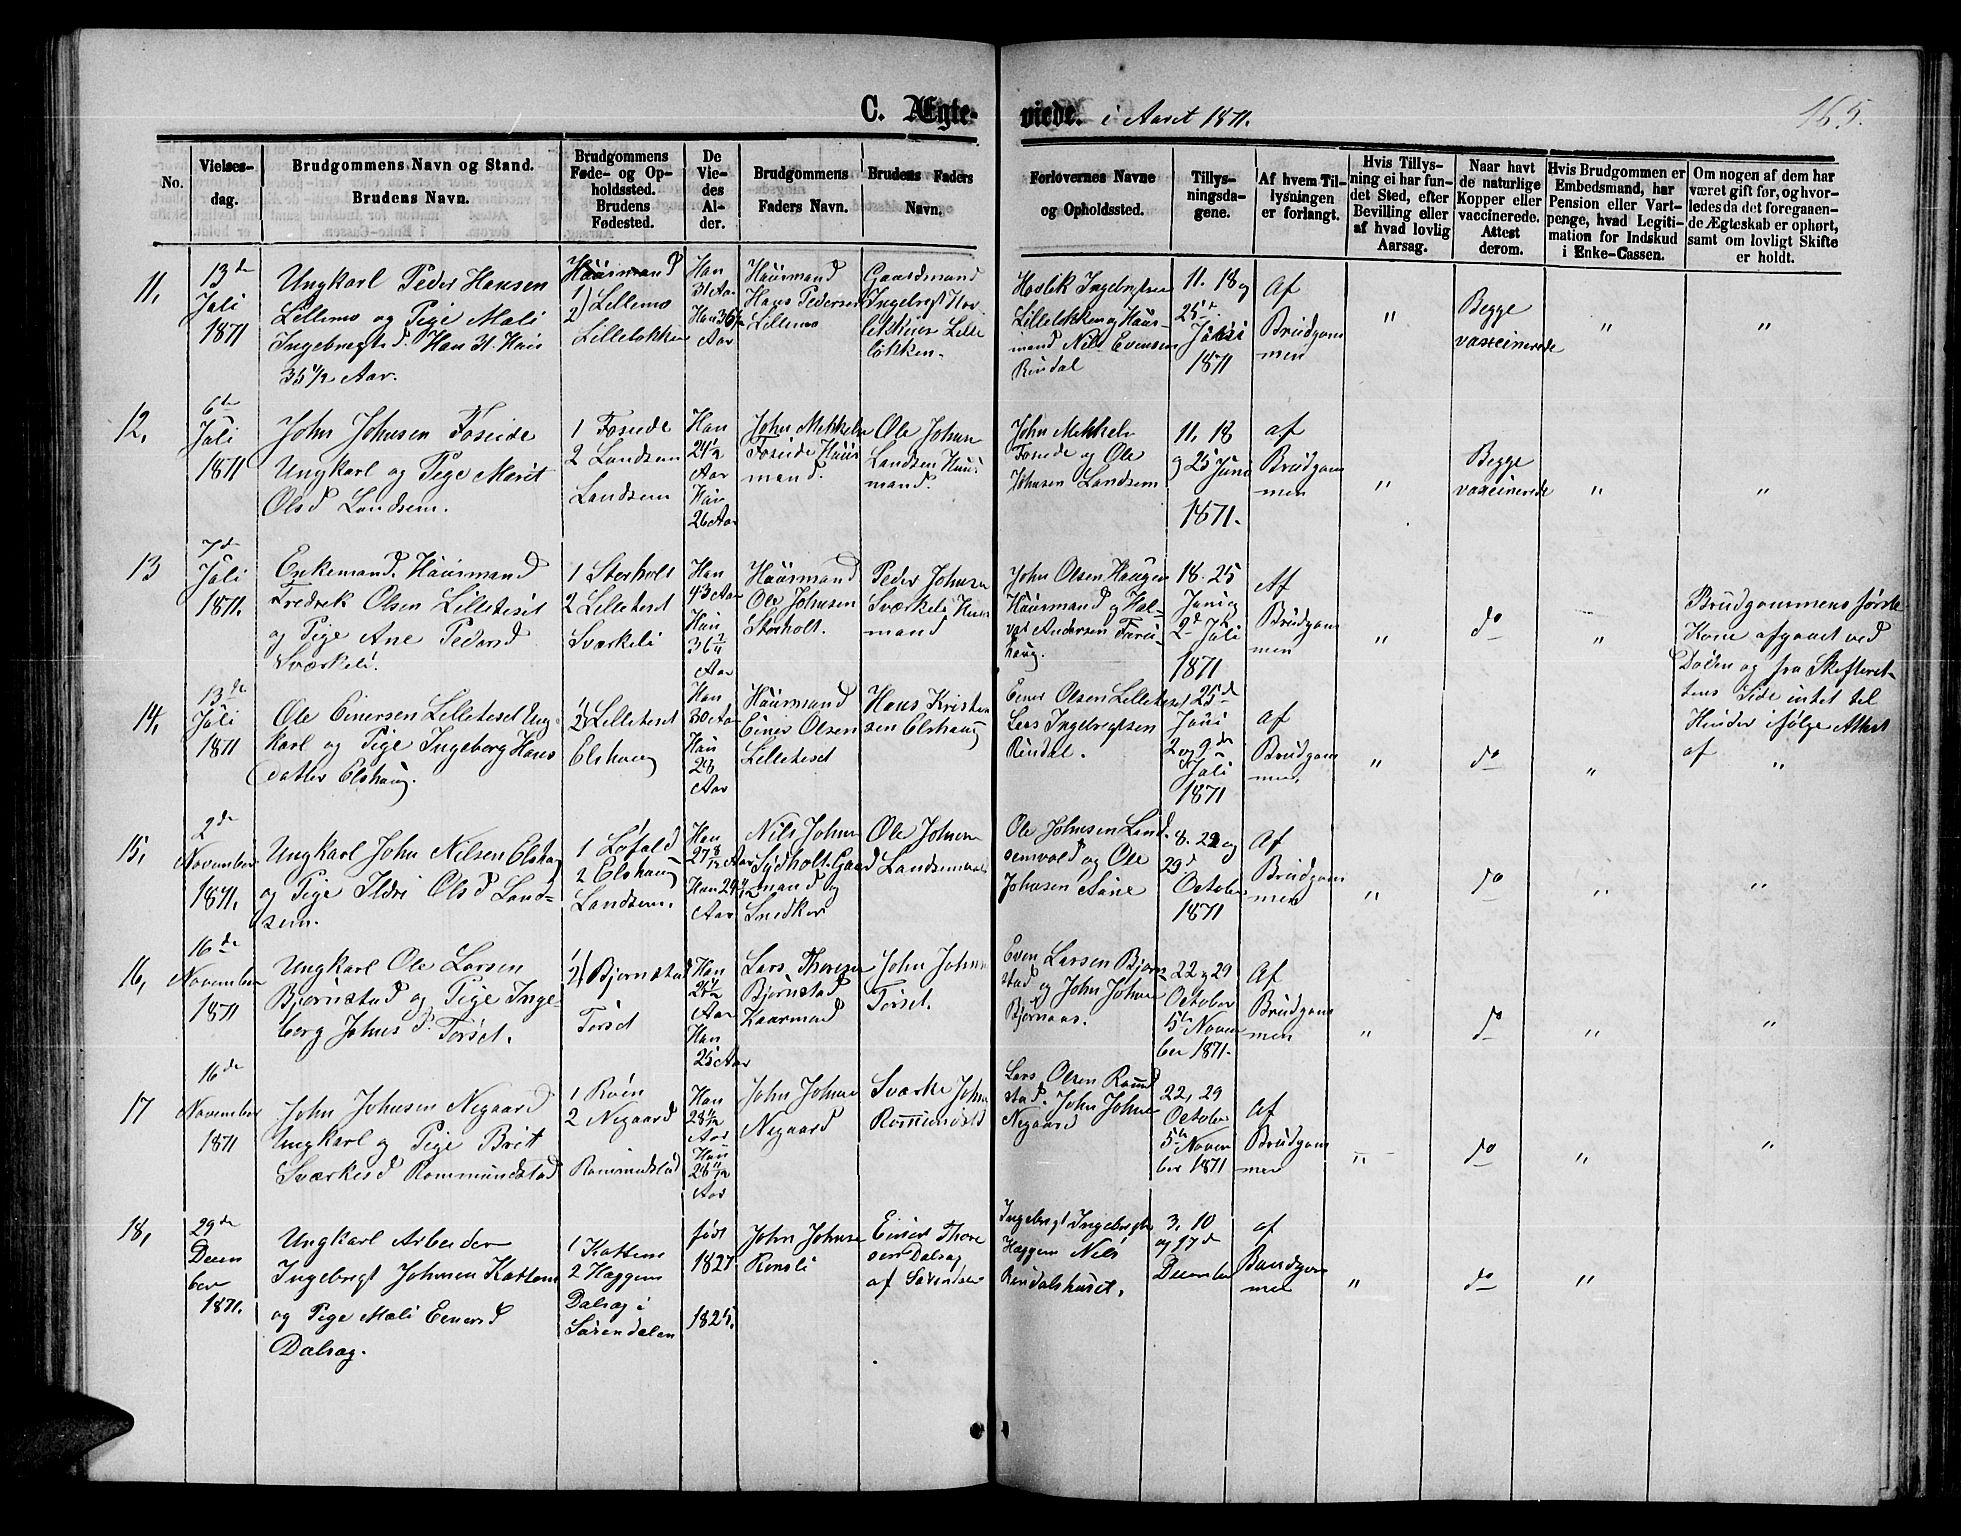 C. Ægteviede. i Aaret 1871.
165.
No.
Vielsesdag.
Brudgommens Navn og Stand.
Brudens Navn.
Brudgommens
Føde- og Opholdssted.
Brudens
Fødested.
De
Viedes
Alder.
Brudgommens
Faders Navn.
Brudens Faders
Navn.
Forlovernes Navne
og Opholdssted.
Tillysningsdagene.
Af hvem Tillysningen
er forlangt.
Hvis Tillysning ei har fundet Sted, efter
Bevilling eller
af hvad lovlig
Aarsag.
Naar havt
de naturlige
Kopper eller
vaccinerede.
Attest
derom.
Hvis Brudgommen er
Embedsmand, har
Pension eller Vartpenge, hvad Legitimation for Indskud
i Enke-Cassen.
Om nogen af dem har
været gift før, og hvorledes da det foregaaende Ægteskab er ophørt,
samt om lovligt Skifte
er holdt.
11,
13de
Juli
1871
Ungkarl Peder Hansen
Lillemo og Pige Mali
Ingebrigtsd. Han 31. Hun
35 1/2 Aar.
Huusmand
1) Lillemo
2)
Lilleløkken
Han
31 Aar
Hun 36
Aar
Huusmand
Hans Pedersen
Lillemo
Gaardmand
Ingebrigt
Lilleløkken
Lilleløkken og Huusmand Nils Evensen
Rindal
11. 18 og
25de
Juni
1871
Af
Brudgommen
"
Begge
vaxcinerede
"
"
12,
6te
Juli
1871
John Johnsen Foseide
Ungkarl og Pige Marit
Olsd Landsem.
1 Foseide
2 Landsem
Landsem
Han
24 1/2
Aar
Hun
26 Aar
John Mikkelsen
Foseide Huusmand.
Ole Johnsen
Landsem Huusmand.
John Mikkelsen
Foseide og Ole
Johnsen Landsem
11. 18
og 25 Juni
1871.
af
Brudgommen
"
Begge
vaxcinerede
"
"
13
7de
Juli
1871.
Enkemand. Huusmand
Fredrik Olsen Lilleteset
og Pige Ane Pedersd
Sværkeli.
1 Storholt
2 Lilleteset
Sværkeli
Han
43 Aar
Hun
36
Aar
Huusmand
Ole Johnsen
Storholt.
Peder Johnsen
Sværkeli Huusmand
John Olsen Haugen
Huusmand og Halvor Andersen
18. 25
Juni og
2de Juli
1871
Af
Brudgommen
"
do
"
Brudgommens første
Kone afgaaet ved
Døden og fra Skifterettens Side intet til
Hinder ifølge Attest
af
14,
13de
Juli
1871
Ole Einersen Lilleteset Ungkarl og Pige Ingeborg Hansdatter Elshaug.
1) 2) Lilleteset
Elshaug
Han
30 Aar
Hun
28
Aar
Huusmand
Einer Olsen
Lilleteset
Hans Kristensen Elshaug
Einer Olsen Lilleteset
Lars Ingebrigtsen
Rindal.
25de
Juni
2 og 9de
Juli
1871
af
Brudgommen
"
do
"
"
15,
2de
November
1871.
Ungkarl John Nilsen Elshaug
og Pige Ildri Olsd Landsem.
1 Løfald
2 Elshaug
Landsem.
Han
27 8/12 Aar
Hun 29
Aar
Nils Johnsen
Sydholt. Gaardmand og
Snedker
Ole Johnsen
Ole Johnsen Landsemvold og Ole
Johnsen Aune
8. 22 og
29de
October
1871
Af
Brudgommen
"
do
"
"
16,
16de
November
1871
Ungkarl Ole Larsen
Bjørnstad og Pige Ingeborg Johnsd. Torset.
1) 2) Bjørnstad
Torset
Han
Aar
Hun
25 Aar
Lars Thoresen
Bjørnstad
Kaarmand
John Johnsen
Torset.
Even Larsen Bjørnstad og John Johnsen
Bjørnaas.
22 og 29
October
5te November 1871.
Af
Brudgommen
"
do
"
"
17
16de
November
1871
John Johnsen Negaard
Ungkarl og Pige Brit
Sværkesd Rommundstad
1 Roen
2 Negaard
Romundstad
Han
28 1/2
Aar
Hun
Aar
John Johnsen
Negaard
Sværke Johnsen
Romundstad
Lars Olsen Romundstad. John Johnsen
Negaard
22, 29
October
5te November 1871
Af
Brudgommen
"
do
"
"
18,
29de
December
1871.
Ungkarl Arbeider
Ingebrigt Johnsen Kattem
og Pige Mali Einersd
Dalsag.
1 Kattem
2 Hæggem
Dalsag i
Surendalen
født
1827.
1825.
John Johnsen
Ronsli
Einer Thoresen Dalsag
af Surendalen
Ingebrigt Ingebrigtsen
Hæggem Nils
Rindalshuset.
3, 10
og 17de
December
af
Brudgommen
"
do
"